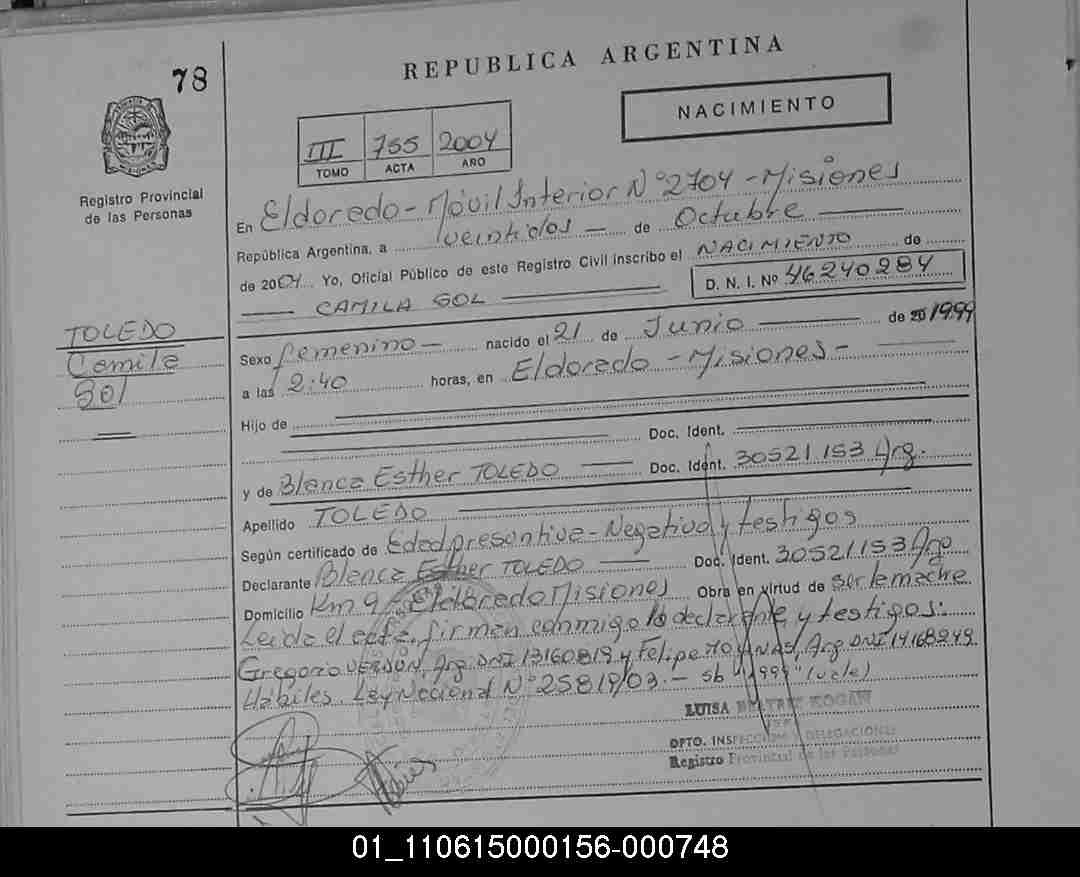 78
REPUBLICA ARGENTINA
NACIMIENTO
III 755 2004
TOMO ACTA AÑO
Registro Provincial
de las Personas
En Eldorado - Móvil Interior N° 2704 - Misiones
República Argentina, a veintidos - de Octubre
de 2004 Yo, Oficial Público de este Registro Civil inscribo el NACIMIENTO de
CAMILA SOL D. N. I. Nº 46240284
TOLEDO
Camila
Sol
Sexo femenino - nacido el 21 de Junio de 20 1999
a las 2:40 horas, en Eldorado - Misiones -
Hijo de
Doc. Ident.
y de Blanca Esther TOLEDO Doc. Ident. 30521153 Arg.
Apellido TOLEDO
Según certificado de Edad presuntiva - Negativa y testigos
Declarante Blanca Esther TOLEDO Doc. Ident. 30521153 Arg
Domicilio Km 9 Eldorado Misiones Obra en virtud de ser la madre
Leida el acta, firman conmigo la declarante y testigos:
Gregorio Arg. DNI 13160819 y Felipe Arg DNI 14168249
Hábiles. Ley Nacional N° 25819/03. - sb "1999" (vale)
LUISA BEATRIZ KOGAN
DPTO. INSPECCION Y DELEGACIONES
Registro Provincial de las Personas
01_110615000156-000748